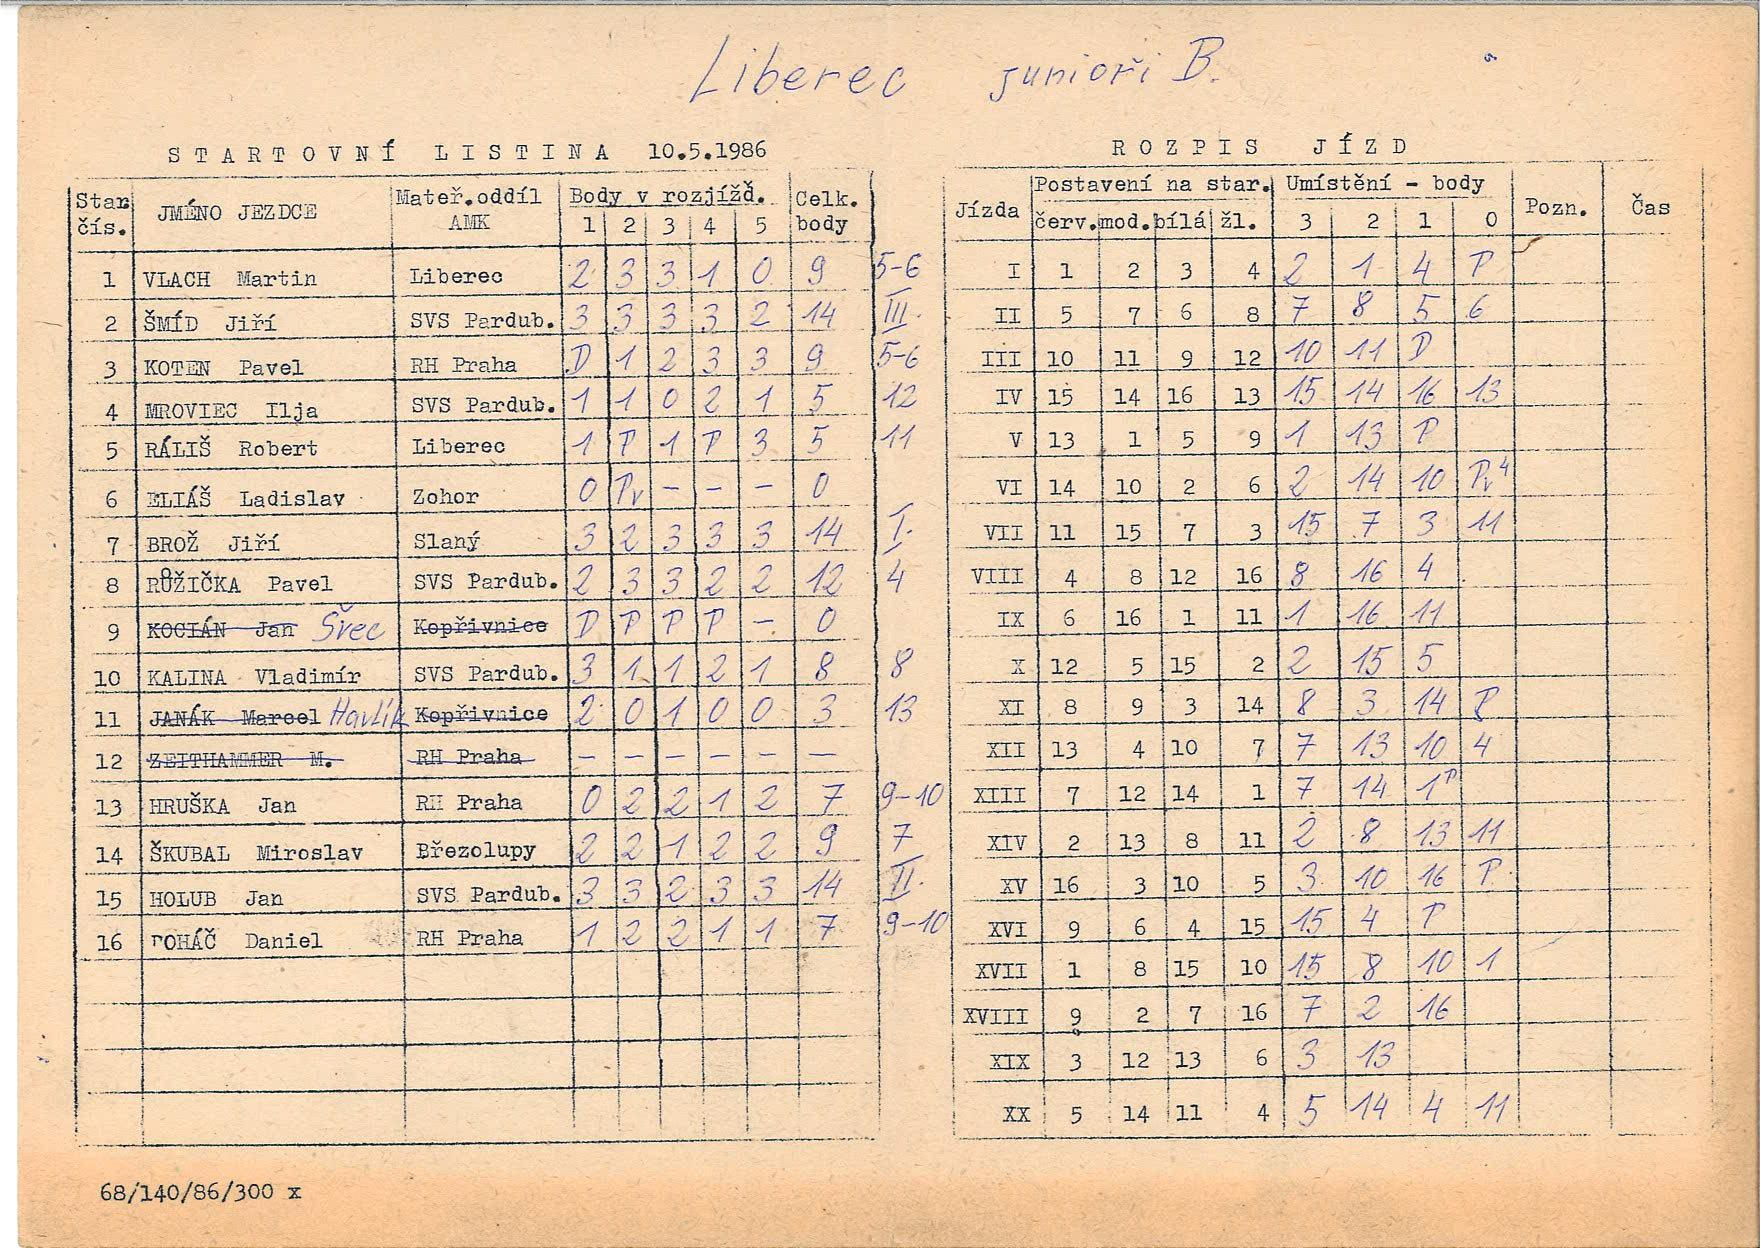 Liberec junioři B.
STARTOVNÍ LISTINA 10.5.1986
Star. čís. JMÉNO JEZDCE Mateř.oddíl AMK Body v rozjížď. 1 2 3 4 5 Celk. body
1 VLACH Martin Liberec 2 3 3 1 0 9 5-6
2 ŠMÍD Jiří SVS Pardub. 3 3 3 3 2 14 III.
3 KOTEN Pavel RH Praha D 1 2 3 3 9 5-6
4 MROVIEC Ilja SVS Pardub. 1 1 0 2 1 5 12
5 RÁLIŠ Robert Liberec 1 P 1 P 3 5 11
6 ELIÁŠ Ladislav Zohor 0 Pv - - - 0
7 BROŽ Jiří Slaný 3 2 3 3 3 14 I.
8 RŮŽIČKA Pavel SVS Pardub. 2 3 3 2 2 12 4
9 KOCIÁN Jan Švec Kopřivnice D P P P - 0
10 KALINA Vladimír SVS Pardub. 3 1 1 2 1 8 8
11 JANÁK Marcel Havlík Kopřivnice 2 0 1 0 0 3 13
12 ZEITHAMMER M. RH Praha - - - - - -
13 HRUŠKA Jan RH Praha 0 2 2 1 2 7 9-10
14 ŠKUBAL Miroslav Březolupy 2 2 1 2 2 9 7
15 HOLUB Jan SVS Pardub. 3 3 2 3 3 14 II.
16 BOHÁČ Daniel RH Praha 1 2 2 1 1 7 9-10
68/140/86/300 x
ROZPIS JÍZD
Jízda Postavení na star. červ. mod. bílá žl. Umístění - body 3 2 1 0 Pozn. Čas
I 1 2 3 4 2 1 4 P
II 5 7 6 8 7 8 5 6
III 10 11 9 12 10 11 D
IV 15 14 16 13 15 14 16 13
V 13 1 5 9 1 13 P
VI 14 10 2 6 2 14 10 Pv4
VII 11 15 7 3 15 7 3 11
VIII 4 8 12 16 8 16 4
IX 6 16 1 11 1 16 11
X 12 5 15 2 2 15 5
XI 8 9 3 14 8 3 14 P
XII 13 4 10 7 7 13 10 4
XIII 7 12 14 1 7 14 1P
XIV 2 13 8 11 2 8 13 11
XV 16 3 10 5 3 10 16 P
XVI 9 6 4 15 15 4 P
XVII 1 8 15 10 15 8 10 1
XVIII 9 2 7 16 7 2 16
XIX 3 12 13 6 3 13
XX 5 14 11 4 5 14 4 11